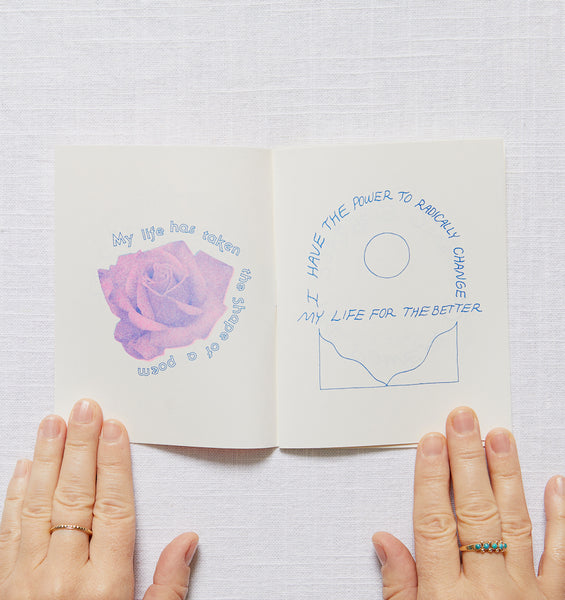 My life has taken the shape of a poem
I HAVE THE POWER TO RADICALLY CHANGE
MY LIFE FOR THE BETTER